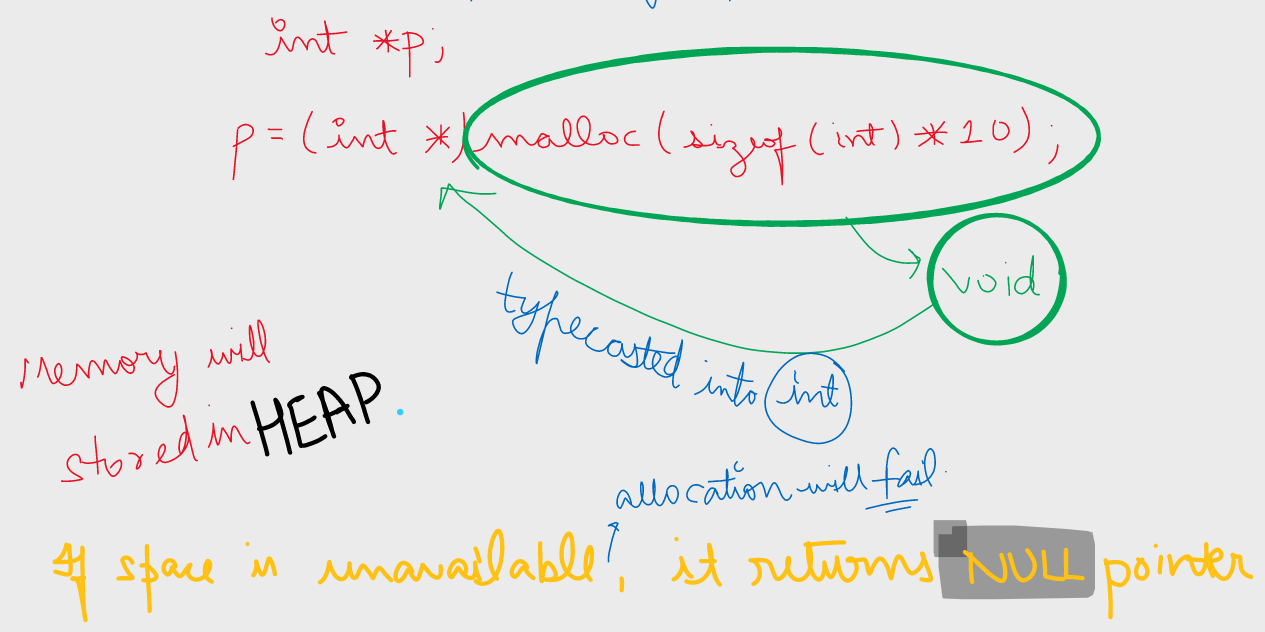 int *p;
p = (int *) malloc ( sizeof (int) * 10 ) ;
void
typecasted into int
Memory will
stored in HEAP.
allocation will fail.
If space is unavailable, it returns NULL pointer